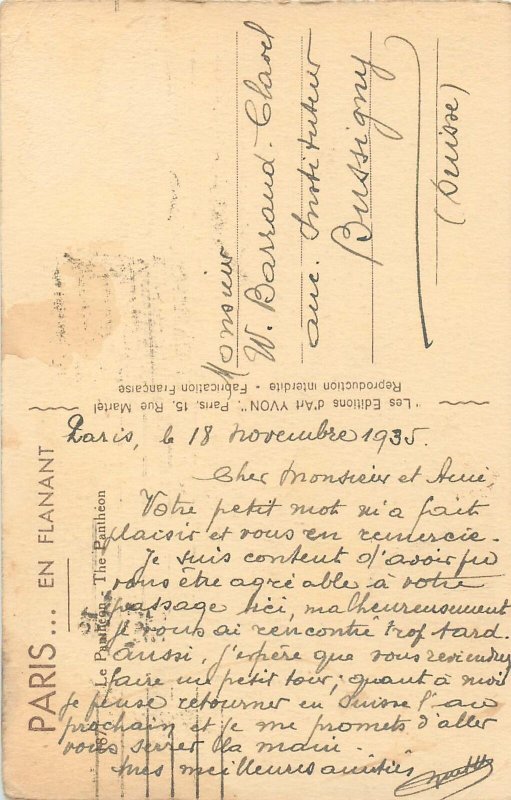 Monsieur
W. Barraud-Charel
anc. Instituteur
Bussigny
(Suisse)
"Les Editions d'Art YVON". Paris, 15, Rue Martel
Reproduction interdite - Fabrication Française
PARIS... EN FLANANT
Le Panthéon - The Panthéon
Paris, le 18 novembre 1935.
Cher Monsieur et Ami,
Votre petit mot m'a fait
plaisir et vous en remercie.
Je suis content d'avoir pu
vous être agréable à votre
passage ici, malheureusement
je vous ai rencontré trop tard.
aussi, j'espère que vous reviendrez
faire un petit tour; quant à moi
je pense retourner en Suisse l'an
prochain et je me promets d'aller
vous serrer la main.
mes meilleures amitiés